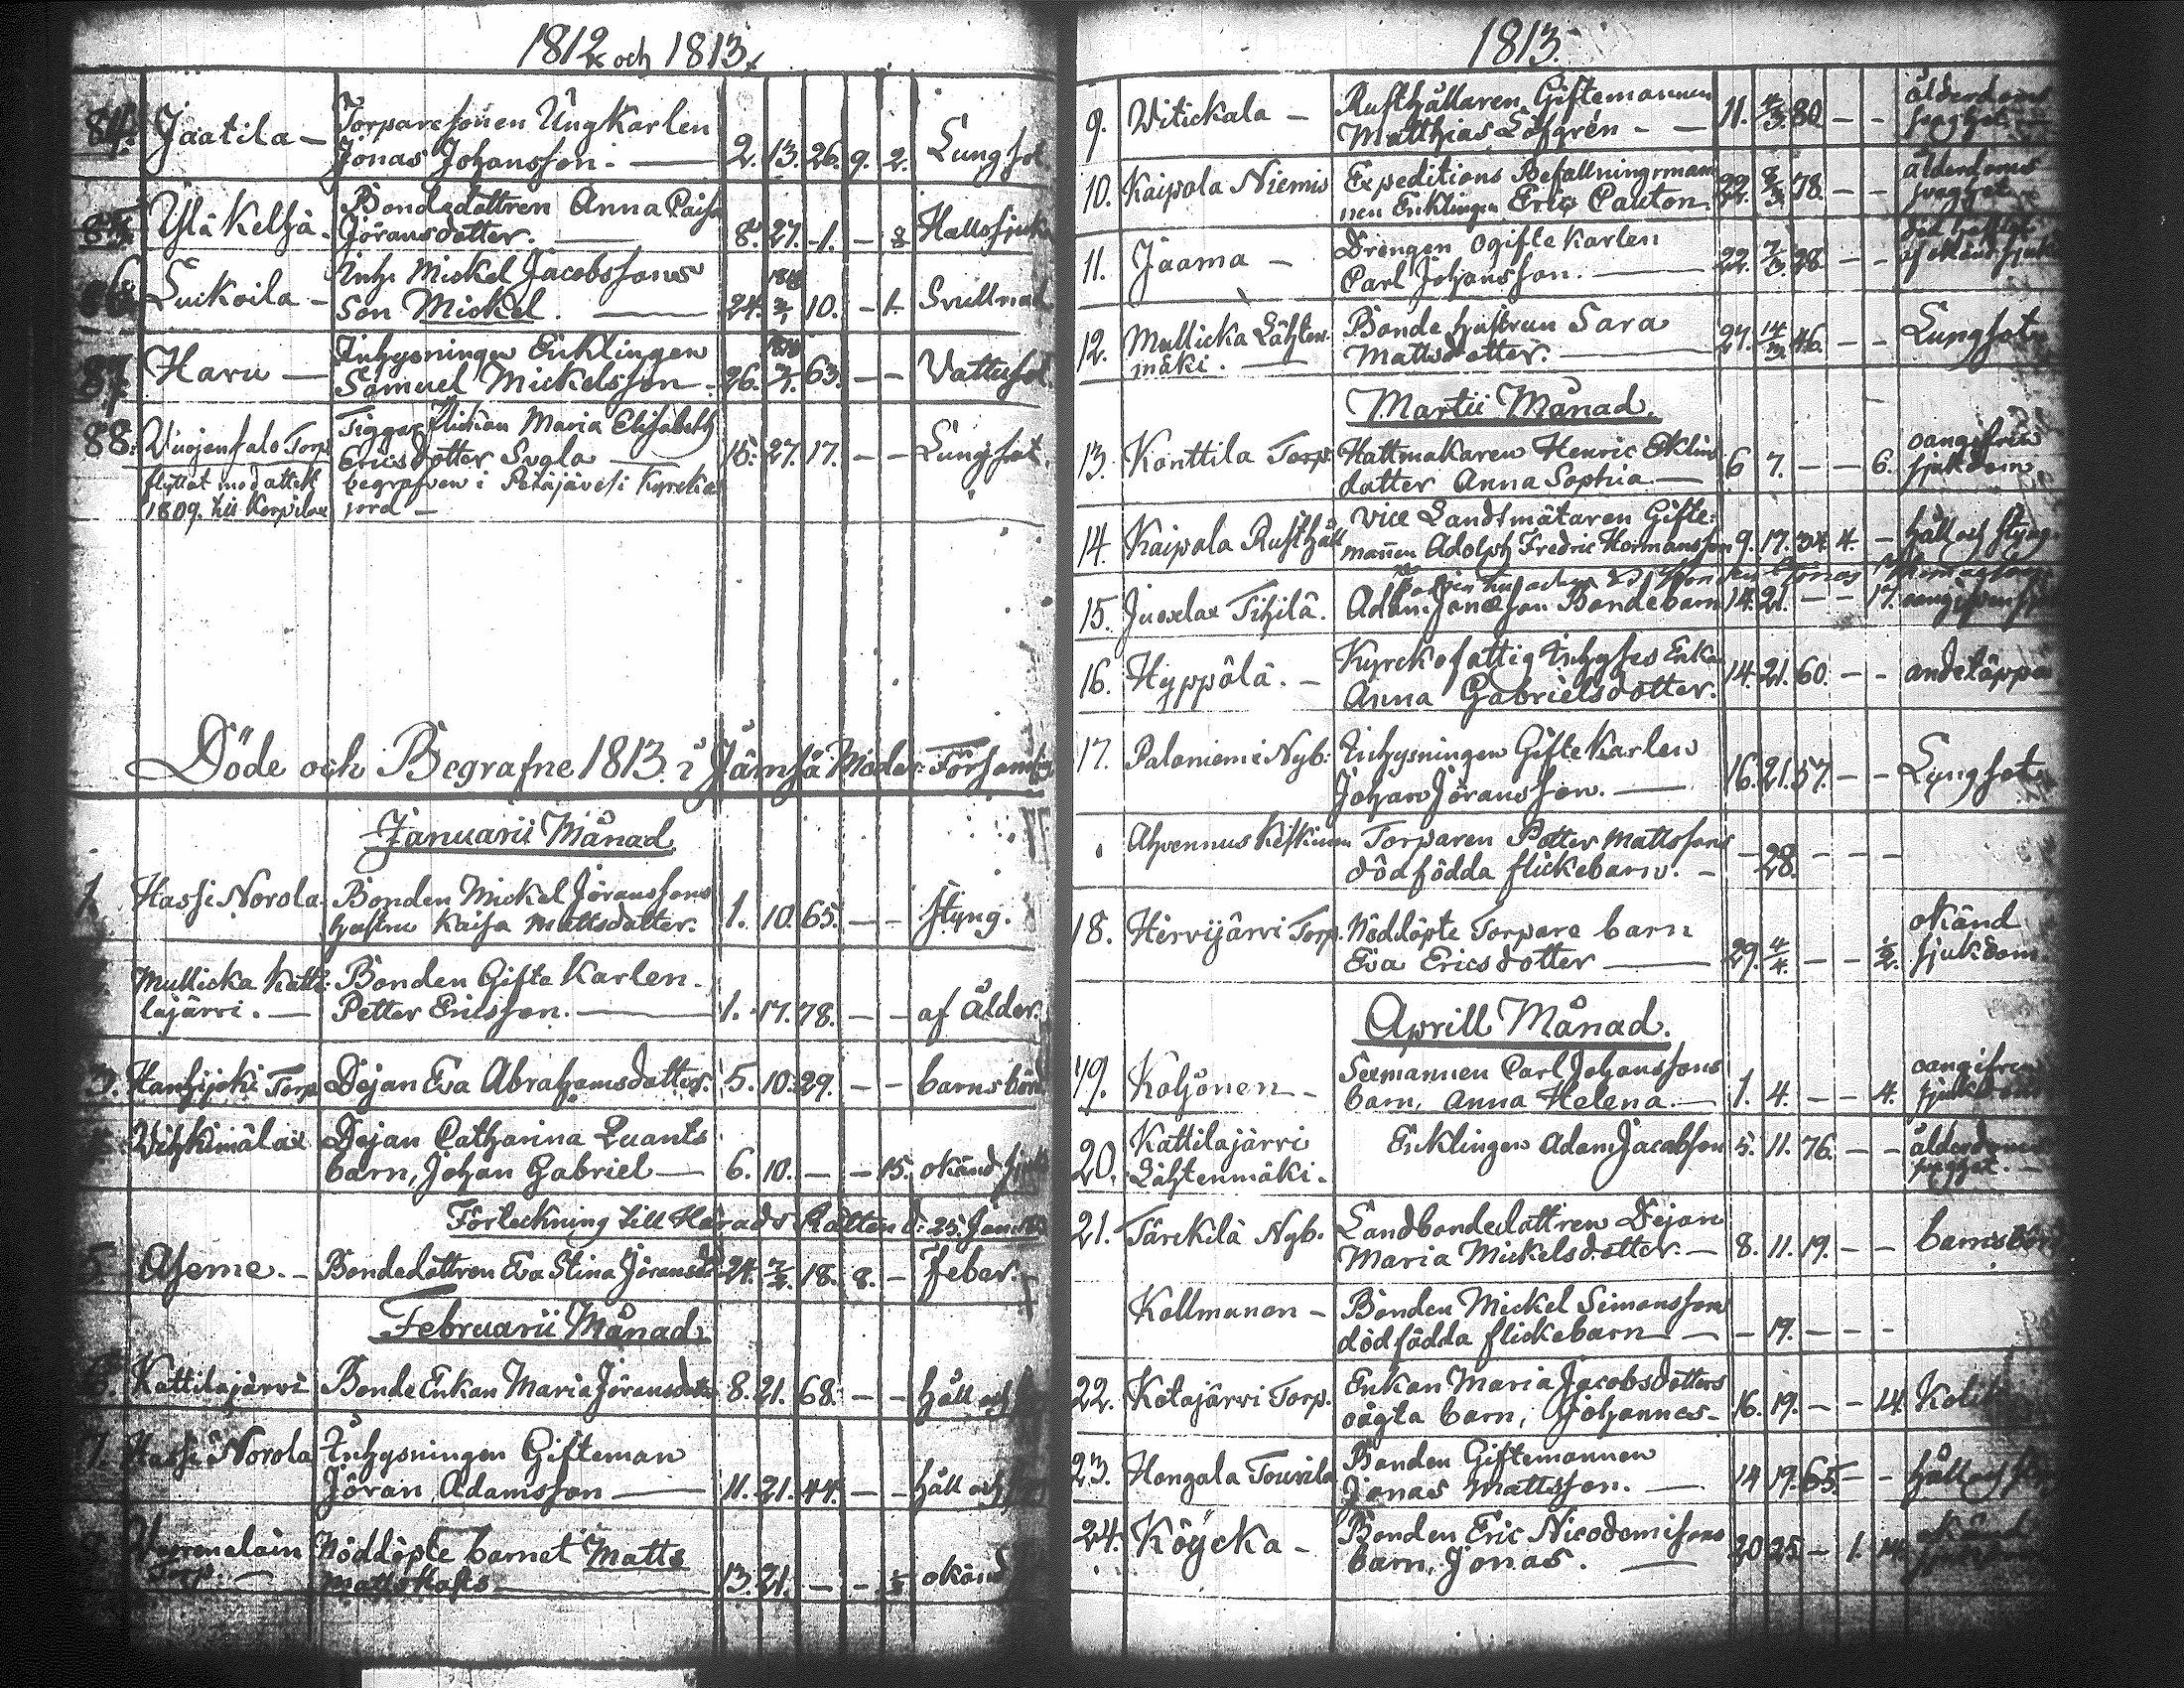 1812 och 1813.
84. Jaatila - Torparesonen Ungkarlen
Jonas Johansson. 2. 13. 26. 9. 2. Lungsot
85. Ylä Keljä. Bondedottren Anna Caisa
Jöransdotter. 8. 27. 1. - 8 Halssjuka
86. Luikoila - Inh. Mickel Jacobssons
Son Mickel. 24. 3/1 10. - 1. Svullnad
87. Haru - Inhysningen Enklingen
Samuel Mickelsson. 26. 63. - - Vattusot.
88. Vuojensalo Torp Tiggar Flickan Maria Elisabeth
Ericsdotter Svala 15. 27. 17. - - Lungsot.
flyttat med attest begrafven i Petäjävesi Kyrcko
1809. till Korpilax jord -
Döde och Begrafne 1813. i Jämsä Moder Församling
Januarii Månad
1. Hassi Norola Bonden Mickel Jöranssons
hustru Kaisa Mattsdotter. 1. 10. 65. - - styng.
Mullicka Katti- Bonden Gifta Karlen
lajärvi. - Petter Ericsson. 1. 17. 78. - - af Ålder.
3. Hanhijoki Torp Pejan Eva Abrahamsdotter. 5. 10. 29. - - barnsbörd
Vihkimälax Pejan Catharina Quants
barn, Johan Gabriel 6. 10. - - 15. okänd sjukd
Förteckning till Härads Rätten d. 25. Januarii
5 Aseme. - Bondedottren Eva Stina Jöransdr 24. 7/2. 18. 8. - feber.
Februarii Månad
6. Kattilajärvi Bonde Enkan Maria Jöransdotter 8. 21. 68. - - håll och
7. Hassi Norola Inhysningen Gifteman
Jöran Adamsson 11. 21. 44. - - håll och
Nöddöpte barnet Matts
Torp. 13. 21. - - 1/2 okänd
1813.
9. Witickala - Rusthållaren Giftemannen
Matthias Löfgrén - - 11. 7/3. 80 - - ålderdoms
svaghet
10. Kaipola Niemis Expeditions Befallningsman
nen Enklingen Eric Canton 22. 8/3. 78. - - ålderdoms
svaghet
11. Jaama - Drengen ogifte karlen
Carl Johansson. 22. 7/3. 28. - - af okänd sjukd
12. Mullicka Lähten- Bonde hustrun Sara
mäki. Mattsdotter. 27. 14/3. 46. - - Lungsot
Martii Månad.
13. Konttila Torp. Hattmakaren Henric Eklins
dotter Anna Sophia 6 7. - - 6. oangifven
sjukdom.
14. Kaipola Rusthåll Vice Landtmätaren Gifte-
mannen Adolph Fredric Hormansson 9. 17. 34. 4. - håll och styng.
15. Juoxlax Tihilä. Adam Jonasson Bondebarn 14. 21. - - 17. oangifven
16. Hyppölä. - Kyrckofattig Inhyses Enkan
Anna Gabrielsdotter. 14. 21. 60. - - andetäppa
17. Paloniemi Nyb: Inhysningen Gifte Karlen
Johan Jöransson. 16. 21. 57. - - Lungsot
Ahvennus Keskinen Torparen Petter Mattssons
dödfödda flickebarn. - - 28. - - -
18. Hirvijärvi Torp. Nöddöpte Torpare barn
Eva Ericsdotter 29. 4/4. - - 1/2. okänd
sjukdom.
Aprill Månad.
19. Köljönen - Sexmannen Carl Johanssons
barn, Anna Helena. 1. 4. - - 4. oangifven
sjukdom
20. Kattilajärvi Enklingen Adam Jacobsson 5. 11. 76. - - ålderdoms
Lähtenmäki. svaghet. -
21. Tärckilä Nyb. Landbondedottren Pejan
Maria Mickelsdotter. 8. 11. 19. - - barnsbörd
Kollmanen - Bonden Mickel Simonssons
dödfödda flickebarn - - 19. - - -
22. Kotajärvi Torp. Enkan Maria Jacobsdotters
oägta barn, Johannes - 16. 19. - - 14. Kolik
23. Hongala Tourila Bonden Giftemannen
Jonas Mattsson. 14 19. 65. - - håll och
24. Köycka - Bonden Eric Nicodemissons
barn, Jonas. 20 25 - 1. 14. okänd